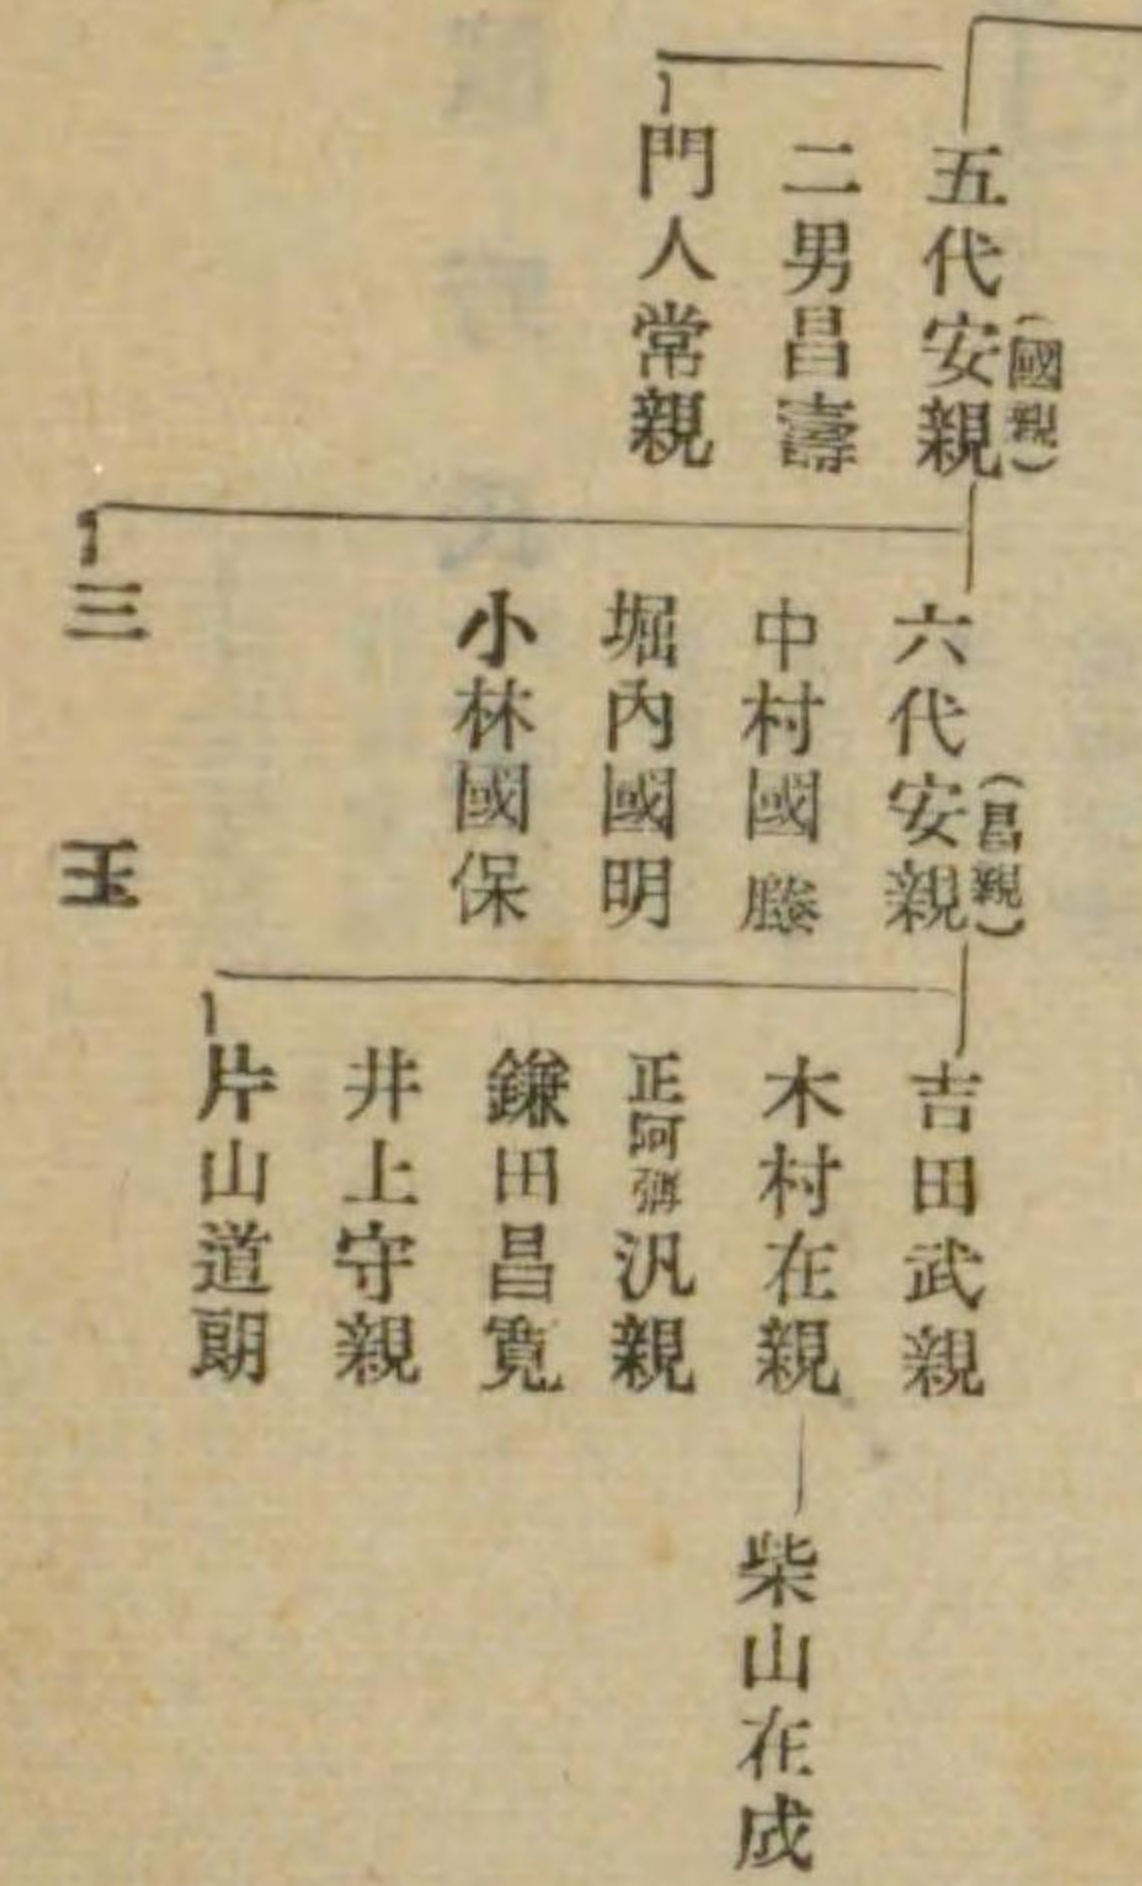 五代安親（國親）
二男昌壽
門人常親
六代安親（昌親）
中村國勝
堀內國明
小林國保
三王
吉田武親
木村在親
柴山在成
正阿彌汎親
鎌田昌寬
井上守親
片山道朗